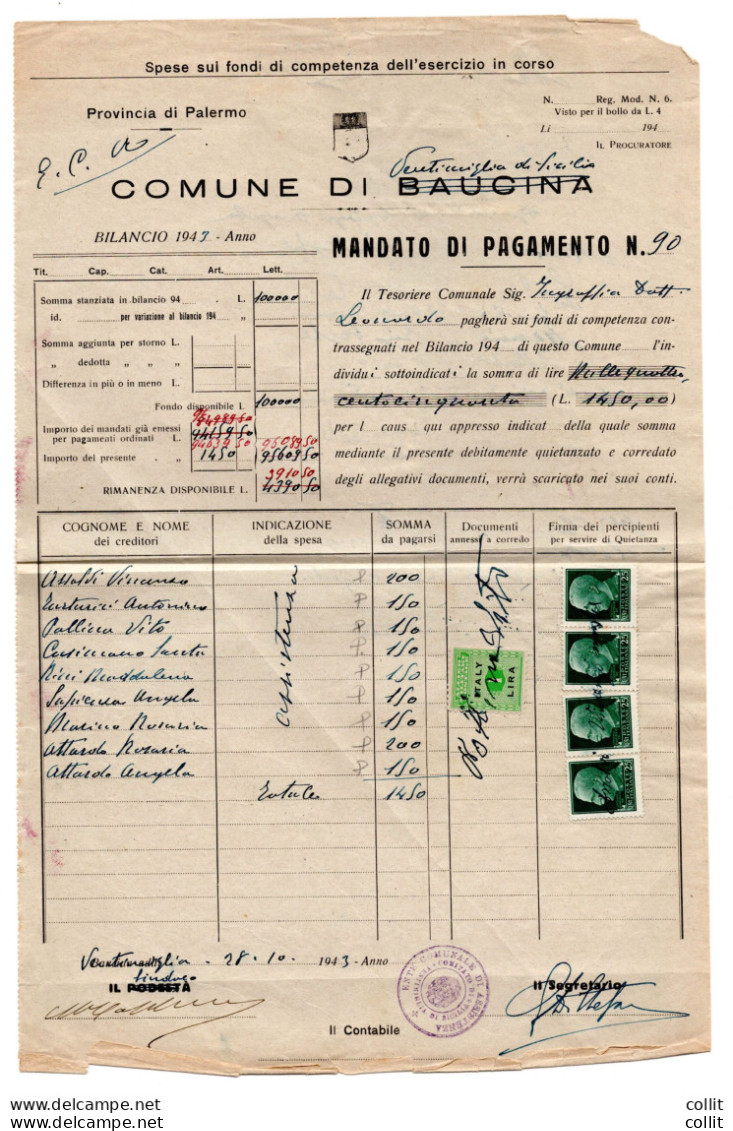 Spese sui fondi di competenza dell'esercizio in corso
Provincia di Palermo
N. Reg. Mod. N. 6.
Visto per il bollo da L. 4
Li 194
IL PROCURATORE
E. C.
Ventimiglia di Sicilia
COMUNE DI BAUCINA
BILANCIO 1943 - Anno
MANDATO DI PAGAMENTO N. 90
Tit. Cap. Cat. Art. Lett.
Somma stanziata in bilancio 94 L. 100000
id. per variazione al bilancio 194 "
Somma aggiunta per storno L.
" dedotta " L.
Differenza in più o in meno L.
Fondo disponibile L. 100000
Importo dei mandati già emessi
per pagamenti ordinati L. 94159 50
94639 50 95089 50
Importo del presente . " 1450 95609 50
2910 50
RIMANENZA DISPONIBILE L. 4390 50
Il Tesoriere Comunale Sig. Ingraffia Dott.
Leonardo pagherà sui fondi di competenza con-
trassegnati nel Bilancio 194 di questo Comune l'in-
dividui sottoindicati la somma di lire Millequattro
centocinquanta (L. 1450,00)
per l caus qui appresso indicat della quale somma
mediante il presente debitamente quietanzato e corredato
degli allegativi documenti, verrà scaricato nei suoi conti.
COGNOME E NOME INDICAZIONE SOMMA Documenti Firma dei percipienti
dei creditori della spesa da pagarsi annessi a corredo per servire di Quietanza
Vincenzo P 200
Antonino P 150
Pollina Vito P 150
Casimano Santa P. 150
Ricci Maddalena P 150
Sapienza Angela P 150
Marino Rosaria P 150
Attardo Rosaria P 200
Attardo Angela P 150
Totale 1450
assistenza
ITALY
LIRA
Ventimiglia - 28. 10. 1943 - Anno
Sindaco
IL PODESTÀ
Il Segretario
ENTE COMUNALE DI ASSISTENZA
Il Contabile
collit
collit